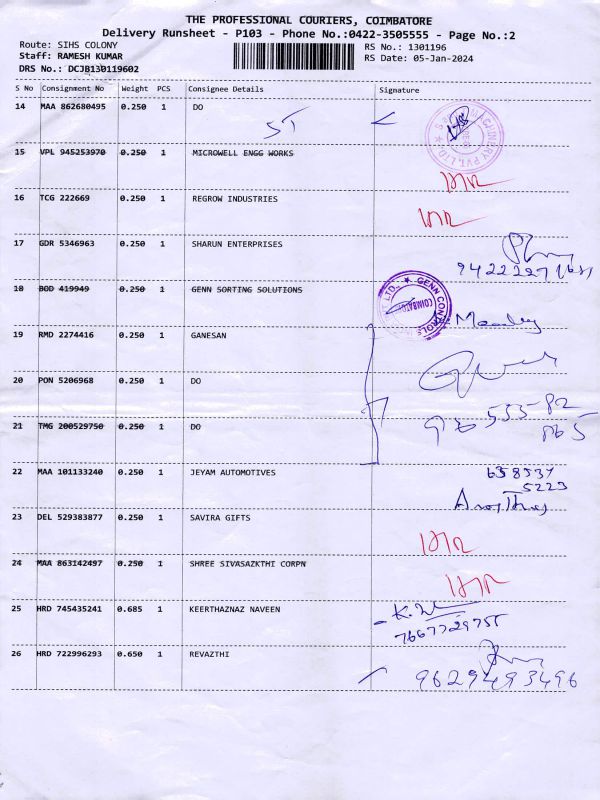 THE PROFESSIONAL COURIERS, COIMBATORE
Delivery Runsheet - P103 - Phone No.:0422-3505555 - Page No.:2
Route: SIHS COLONY
Staff: RAMESH KUMAR
DRS No.: DCJB130119602
RS No.: 1301196
RS Date: 05-Jan-2024
S No Consignment No Weight PCS Consignee Details Signature
14 MAA 862680495 0.250 1 DO
ST
15 VPL 945253970 0.250 1 MICROWELL ENGG WORKS
16 TCG 222669 0.250 1 REGROW INDUSTRIES
17 GDR 5346963 0.250 1 SHARUN ENTERPRISES
18 BOD 419949 0.250 1 GENN SORTING SOLUTIONS
GENN CONTROLS
19 RMD 2274416 0.250 1 GANESAN
20 PON 5206968 0.250 1 DO
21 TMG 200529750 0.250 1 DO
22 MAA 101133240 0.250 1 JEYAM AUTOMOTIVES
638537
5223
23 DEL 529383877 0.250 1 SAVIRA GIFTS
24 MAA 863142497 0.250 1 SHREE SIVASAZKTHI CORPN
25 HRD 745435241 0.685 1 KEERTHAZNAZ NAVEEN
7667729755
26 HRD 722996293 0.650 1 REVAZTHI
9629493496